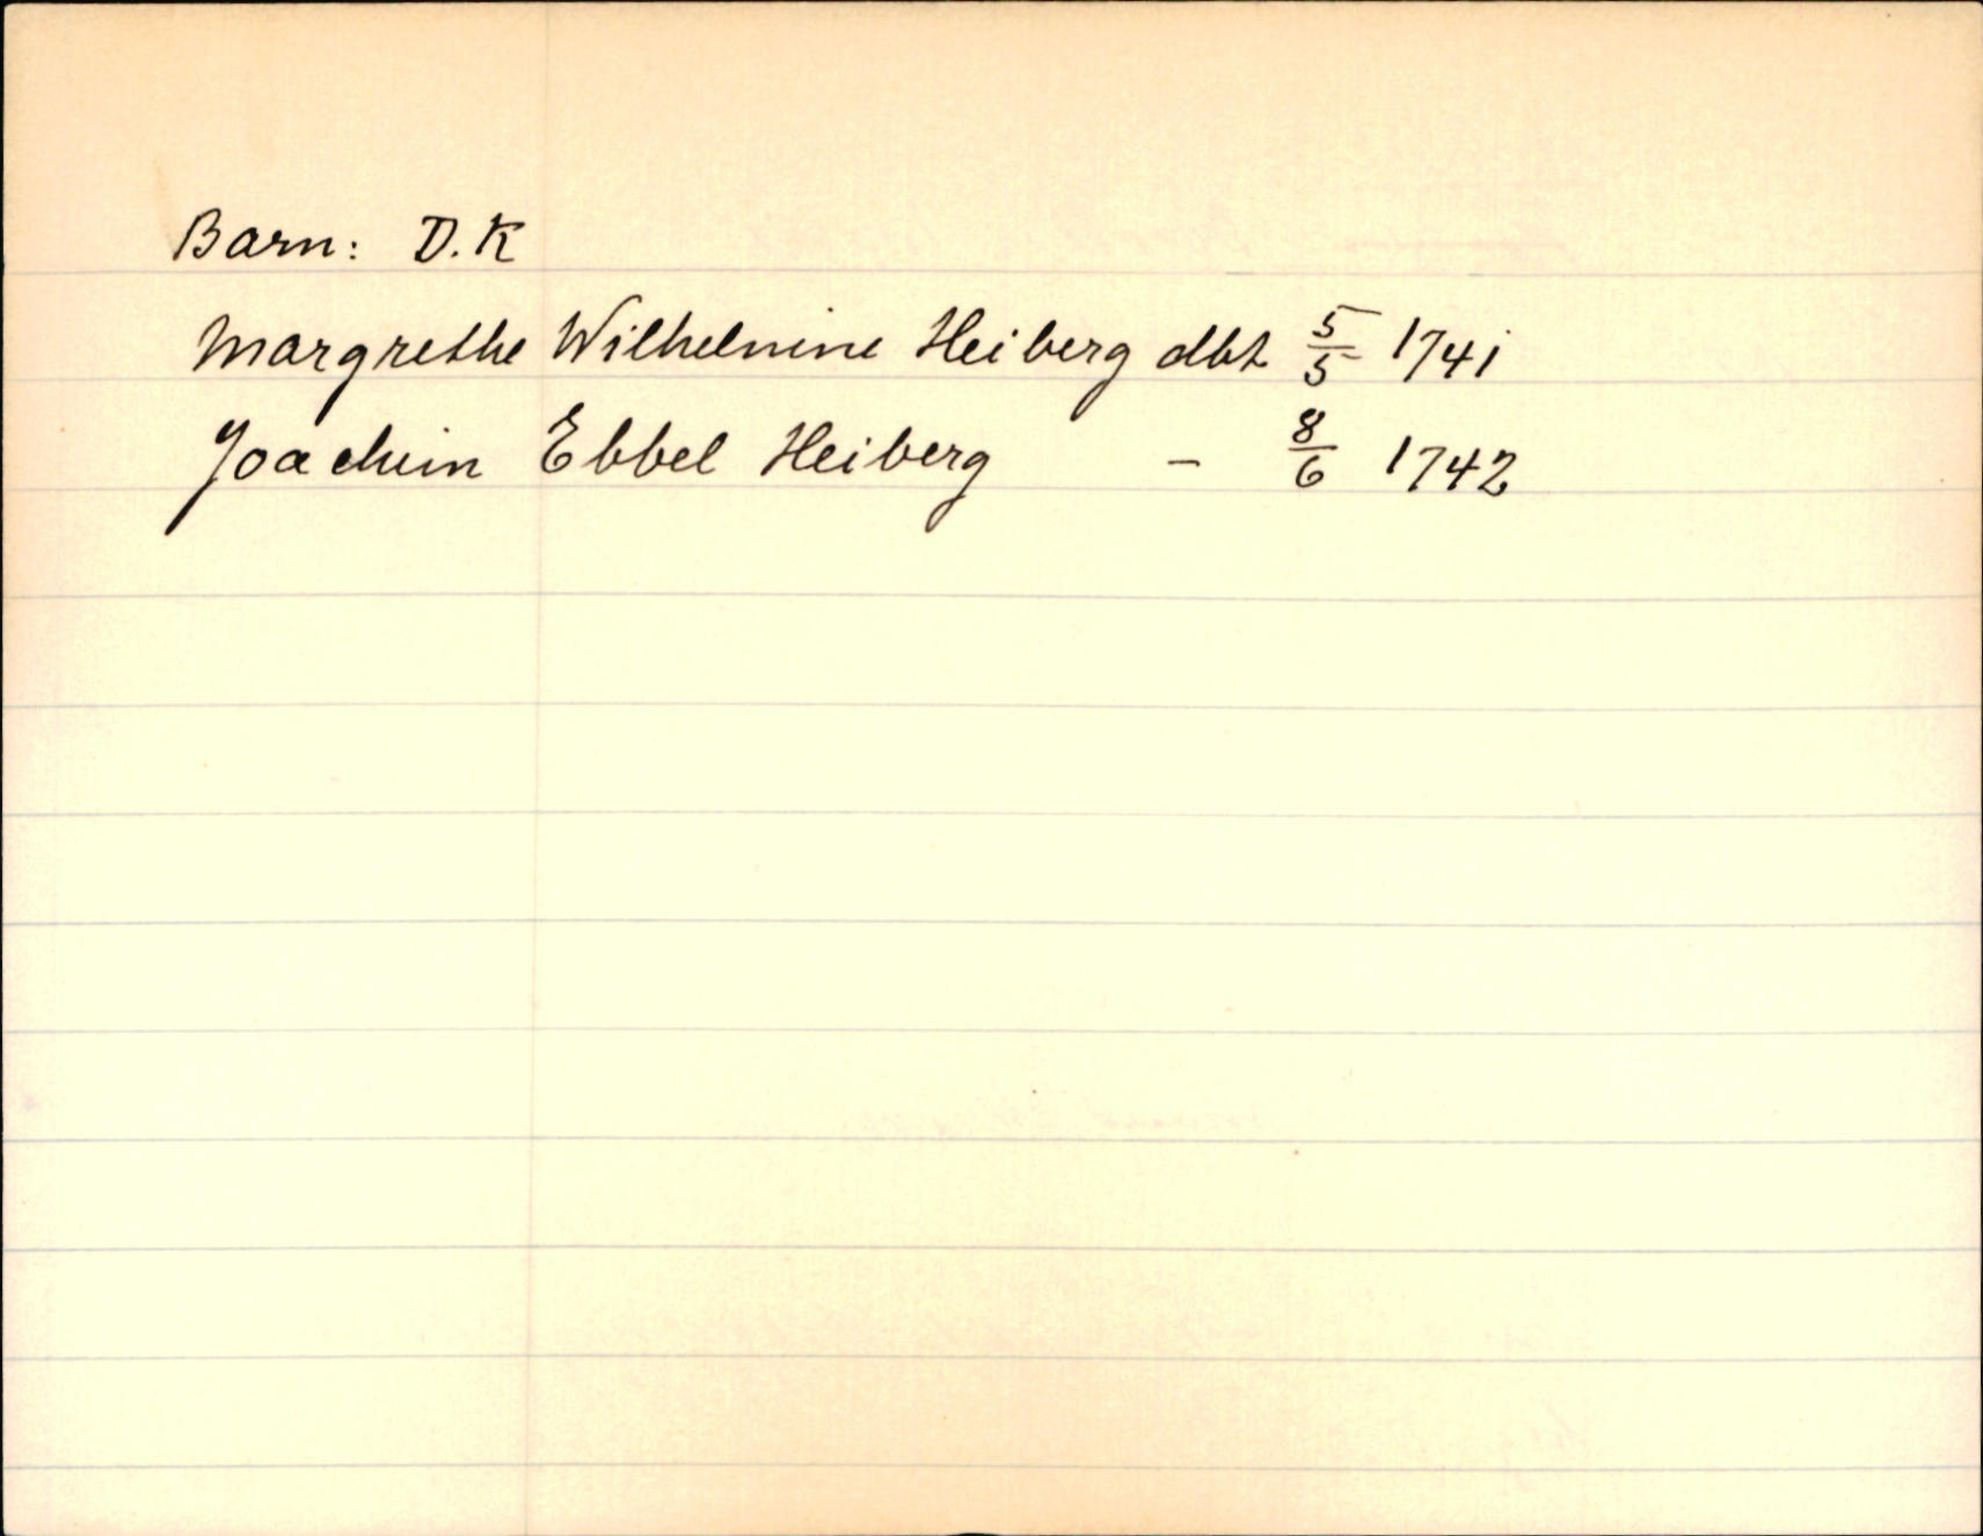 Barn: D.K
Margrethe Wilhelmine Heiberg dbt 5/5 1741
Joachim Ebbel Heiberg - 8/6 1742